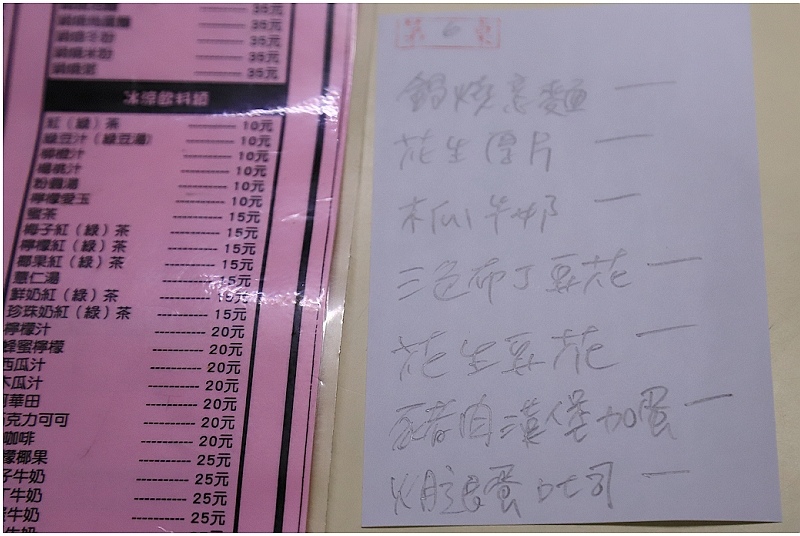 35元
35元
35元
35元
35元
冰涼飲料類
紅（綠）茶 ---------- 10元
綠豆汁（綠豆湯） ---------- 10元
柳橙汁 ---------- 10元
楊桃汁 ---------- 10元
粉圓湯 ---------- 10元
檸檬愛玉 ---------- 10元
蜜茶 ---------- 15元
梅子紅（綠）茶 ---------- 15元
檸檬紅（綠）茶 ---------- 15元
椰果紅（綠）茶 ---------- 15元
薏仁湯 ---------- 15元
鮮奶紅（綠）茶 ---------- 15元
珍珠奶紅（綠）茶 ---------- 15元
檸檬汁 ---------- 20元
蜂蜜檸檬 ---------- 20元
西瓜汁 ---------- 20元
木瓜汁 ---------- 20元
華田 ---------- 20元
克力可可 ---------- 20元
咖啡 ---------- 20元
檬椰果 ---------- 25元
子牛奶 ---------- 25元
丁牛奶 ---------- 25元
牛奶 ---------- 25元
牛奶
第 6 桌
鍋燒意麵 一
花生厚片 一
木瓜牛奶 一
三色布丁豆花 一
花生豆花 一
豬肉漢堡加蛋 一
火腿蛋吐司 一